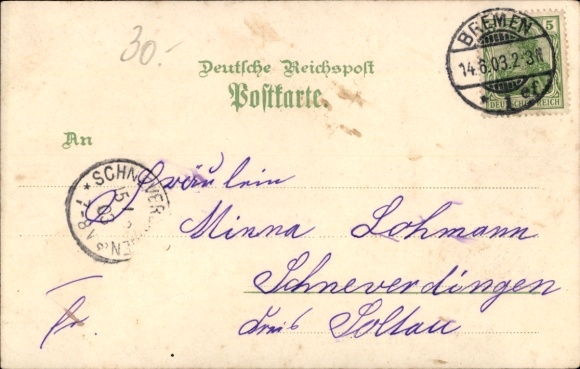 30.-
Deutsche Reichspost
Postkarte.
BREMEN
14.6.03.2-3N
* 1 ef
5
DEUTSCHES REICH
An
* SCHNEVER
15
03
7-8V
EN
Fräulein
Minna Lohmann
Schneverdingen
Kreis Soltau
Fr.